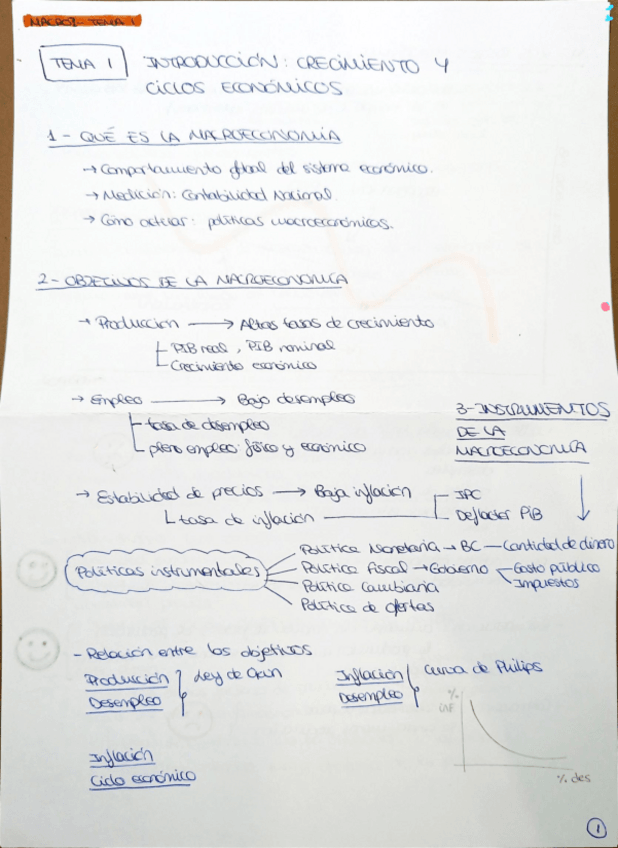 MACRO2 - TEMA 1
TEMA 1 INTRODUCCIÓN: CRECIMIENTO Y
CICLOS ECONÓMICOS
1 - QUÉ ES LA MACROECONOMÍA
→ Comportamiento global del sistema económico.
→ Medición: Contabilidad Nacional.
→ Cómo actuar: políticas macroeconómicas.
2 - OBJETIVOS DE LA MACROECONOMÍA
→ Producción → Altas tasas de crecimiento
PIB real, PIB nominal
Crecimiento económico
→ Empleo → Bajo desempleo
tasa de desempleo
pleno empleo: físico y económico
→ Estabilidad de precios → Baja inflación
IPC
tasa de inflación
Deflactor PIB
3 - INSTRUMENTOS
DE LA
MACROECONOMÍA
Políticas instrumentales
Política Monetaria → BC — Cantidad de dinero
Política Fiscal → Gobierno
Gasto público
Impuestos
Política Cambiaria
Política de ofertas
- Relación entre los objetivos
Producción
Desempleo
Ley de Okun
Inflación
Desempleo
Curva de Philips
%
inf
% des
Inflación
Ciclo económico
1